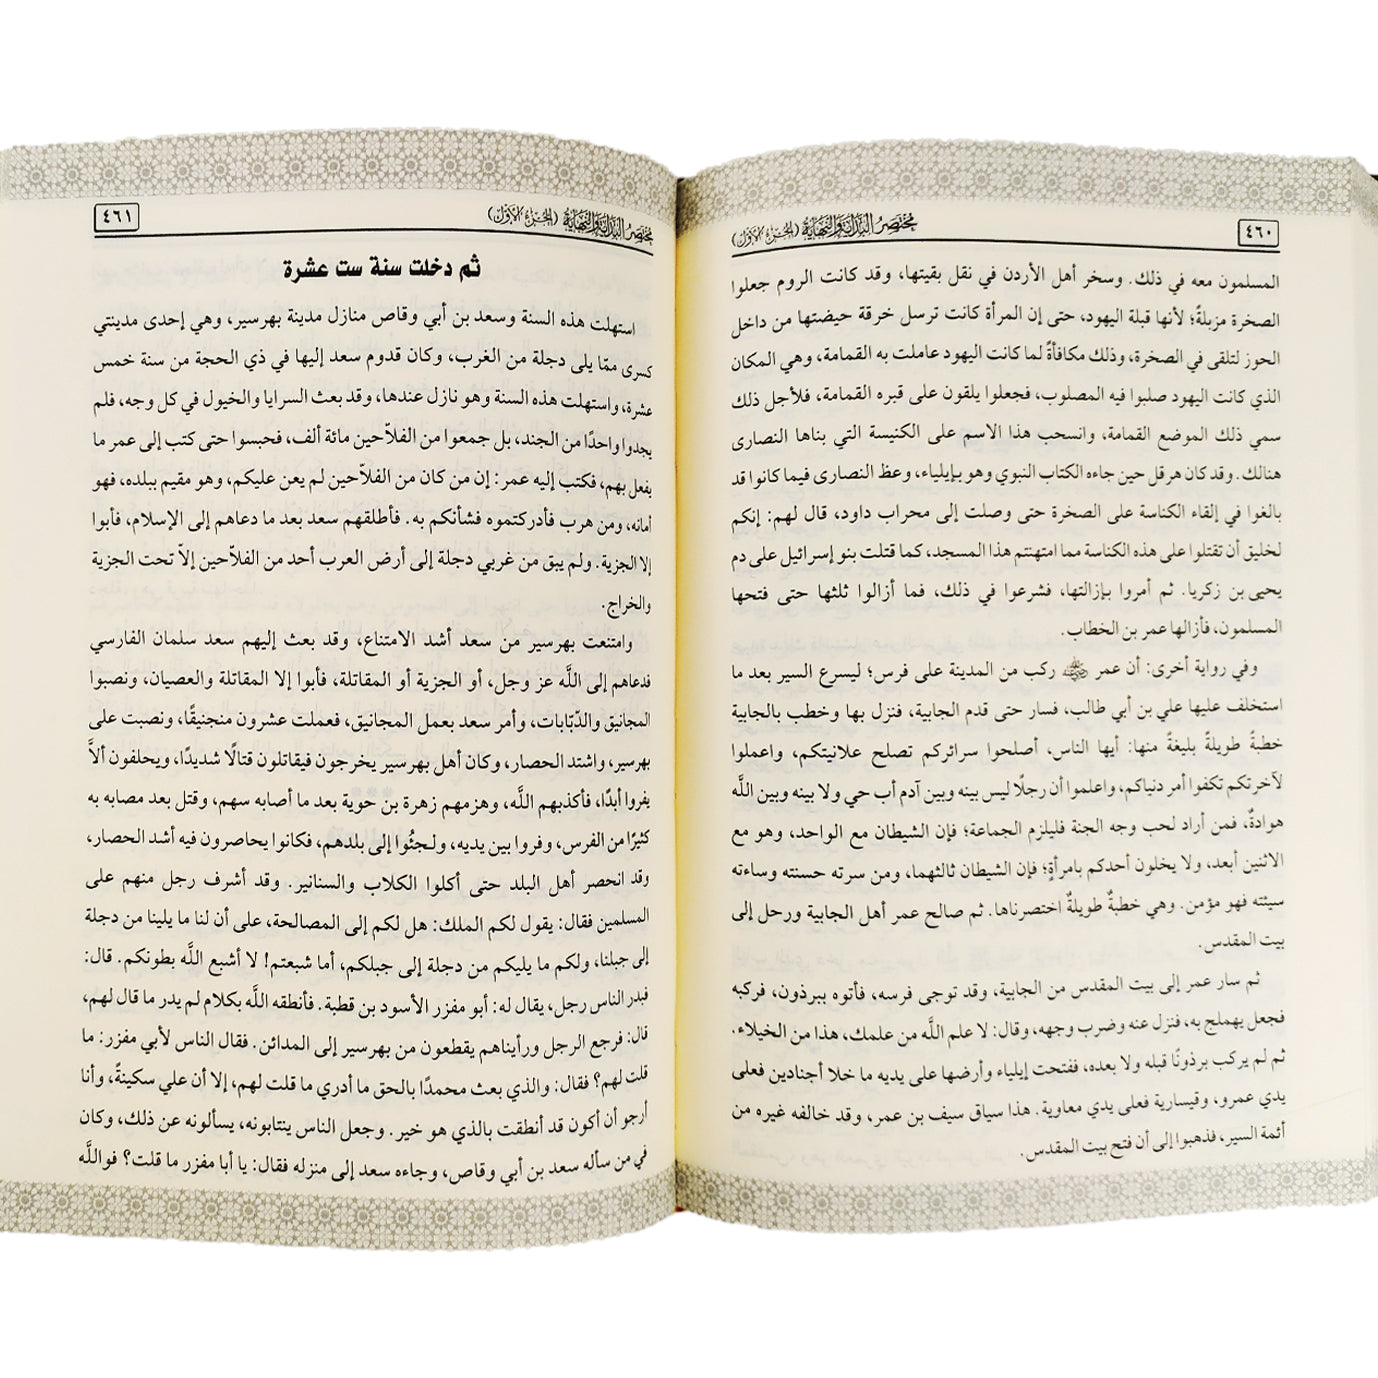 ٤٦٠
مختصر البداية والنهاية (الجزء الأول)
المسلمون معه في ذلك. وسخر أهل الأردن في نقل بقيتها، وقد كانت الروم جعلوا
الصخرة مزبلةً؛ لأنها قبلة اليهود، حتى إن المرأة كانت ترسل خرقة حيضتها من داخل
الحوز لتلقى في الصخرة، وذلك مكافأةً لما كانت اليهود عاملت به القمامة، وهي المكان
الذي كانت اليهود صلبوا فيه المصلوب، فجعلوا يلقون على قبره القمامة، فلأجل ذلك
سمي ذلك الموضع القمامة، وانسحب هذا الاسم على الكنيسة التي بناها النصارى
هنالك. وقد كان هرقل حين جاءه الكتاب النبوي وهو بإيلياء، وعظ النصارى فيما كانوا قد
بالغوا في إلقاء الكناسة على الصخرة حتى وصلت إلى محراب داود، قال لهم: إنكم
لخليق أن تقتلوا على هذه الكناسة مما امتهنتم هذا المسجد، كما قتلت بنو إسرائيل على دم
يحيى بن زكريا. ثم أمروا بإزالتها، فشرعوا في ذلك، فما أزالوا ثلثها حتى فتحها
المسلمون، فأزالها عمر بن الخطاب.
وفي رواية أخرى: أن عمر ركب من المدينة على فرس؛ ليسرع السير بعد ما
استخلف عليها علي بن أبي طالب، فسار حتى قدم الجابية، فنزل بها وخطب بالجابية
خطبةً طويلةً بليغةً منها: أيها الناس، أصلحوا سرائركم تصلح علانيتكم، واعملوا
لآخرتكم تكفوا أمر دنياكم، واعلموا أن رجلًا ليس بينه وبين آدم أب حي ولا بينه وبين اللَّه
هوادةٌ، فمن أراد لحب وجه الجنة فليلزم الجماعة؛ فإن الشيطان مع الواحد، وهو مع
الاثنين أبعد، ولا يخلون أحدكم بامرأةٍ؛ فإن الشيطان ثالثهما، ومن سرته حسنته وساءته
سيئته فهو مؤمن. وهي خطبةٌ طويلةٌ اختصرناها. ثم صالح عمر أهل الجابية ورحل إلى
بيت المقدس.
ثم سار عمر إلى بيت المقدس من الجابية، وقد توجى فرسه، فأتوه ببرذون، فركبه
فجعل يهملج به، فنزل عنه وضرب وجهه، وقال: لا علم اللَّه من علمك، هذا من الخيلاء.
ثم لم يركب برذونًا قبله ولا بعده، ففتحت إيلياء وأرضها على يديه ما خلا أجنادين فعلى
يدي عمرو، وقيسارية فعلى يدي معاوية. هذا سياق سيف بن عمر، وقد خالفه غيره من
أئمة السير، فذهبوا إلى أن فتح بيت المقدس.
مختصر البداية والنهاية (الجزء الأول)
٤٦١
ثم دخلت سنة ست عشرة
استهلت هذه السنة وسعد بن أبي وقاص منازل مدينة بهرسير، وهي إحدى مدينتي
كسرى ممّا يلى دجلة من الغرب، وكان قدوم سعد إليها في ذي الحجة من سنة خمس
عشرة، واستهلت هذه السنة وهو نازل عندها، وقد بعث السرايا والخيول في كل وجه، فلم
يجدوا واحدًا من الجند، بل جمعوا من الفلاّحين مائة ألف، فحبسوا حتى كتب إلى عمر ما
يفعل بهم، فكتب إليه عمر: إن من كان من الفلاّحين لم يعن عليكم، وهو مقيم ببلده، فهو
أمانه، ومن هرب فأدركتموه فشأنكم به. فأطلقهم سعد بعد ما دعاهم إلى الإسلام، فأبوا
إلا الجزية. ولم يبق من غربي دجلة إلى أرض العرب أحد من الفلاّحين إلاّ تحت الجزية
والخراج.
وامتنعت بهرسير من سعد أشد الامتناع، وقد بعث إليهم سعد سلمان الفارسي
فدعاهم إلى اللَّه عز وجل، أو الجزية أو المقاتلة، فأبوا إلا المقاتلة والعصيان، ونصبوا
المجانيق والدّبّابات، وأمر سعد بعمل المجانيق، فعملت عشرون منجنيقًا، ونصبت على
بهرسير، واشتد الحصار، وكان أهل بهرسير يخرجون فيقاتلون قتالًا شديدًا، ويحلفون ألاَّ
يفروا أبدًا، فأكذبهم اللَّه، وهزمهم زهرة بن حوية بعد ما أصابه سهم، وقتل بعد مصابه به
كثيرًا من الفرس، وفروا بين يديه، ولجئُوا إلى بلدهم، فكانوا يحاصرون فيه أشد الحصار،
وقد انحصر أهل البلد حتى أكلوا الكلاب والسنانير. وقد أشرف رجل منهم على
المسلمين فقال: يقول لكم الملك: هل لكم إلى المصالحة، على أن لنا ما يلينا من دجلة
إلى جبلنا، ولكم ما يليكم من دجلة إلى جبلكم، أما شبعتم! لا أشبع اللَّه بطونكم. قال:
فبدر الناس رجل، يقال له: أبو مفزر الأسود بن قطبة. فأنطقه اللَّه بكلام لم يدر ما قال لهم،
قال: فرجع الرجل ورأيناهم يقطعون من بهرسير إلى المدائن. فقال الناس لأبي مفزر: ما
قلت لهم؟ فقال: والذي بعث محمدًا بالحق ما أدري ما قلت لهم، إلا أن علي سكينةً، وأنا
أرجو أن أكون قد أنطقت بالذي هو خير. وجعل الناس ينتابونه، يسألونه عن ذلك، وكان
في من سأله سعد بن أبي وقاص، وجاءه سعد إلى منزله فقال: يا أبا مفزر ما قلت؟ فواللَّه